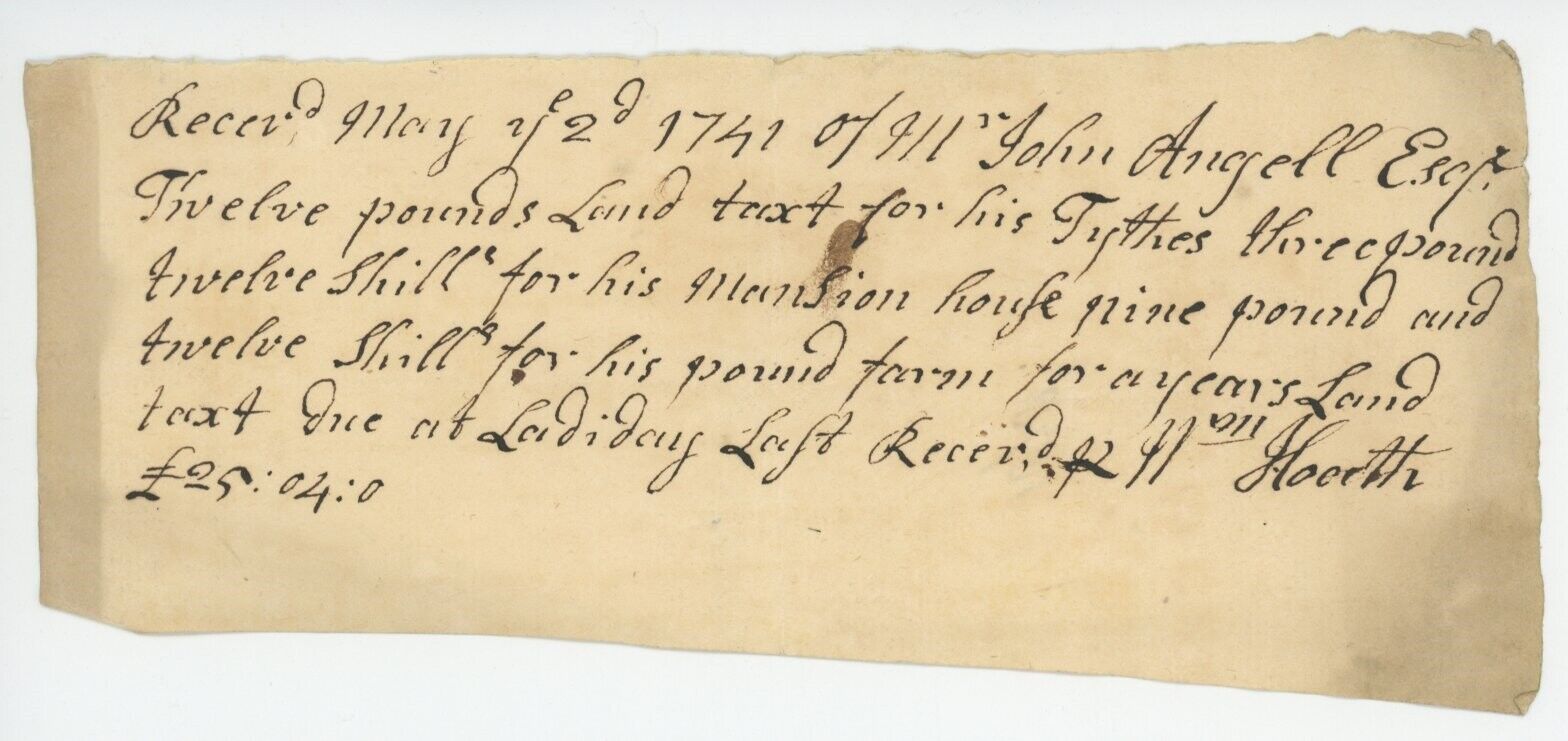 Receiv'd May ye 2d 1741 of Mr John Angell Esqr.
Twelve pounds Land taxt for his Tythes three pound
twelve Shills for his Mansion house nine pound and
twelve Shills for his pound farm for a years Land
taxt due at Ladiday Last Receiv'd p Wam
£25:04:0